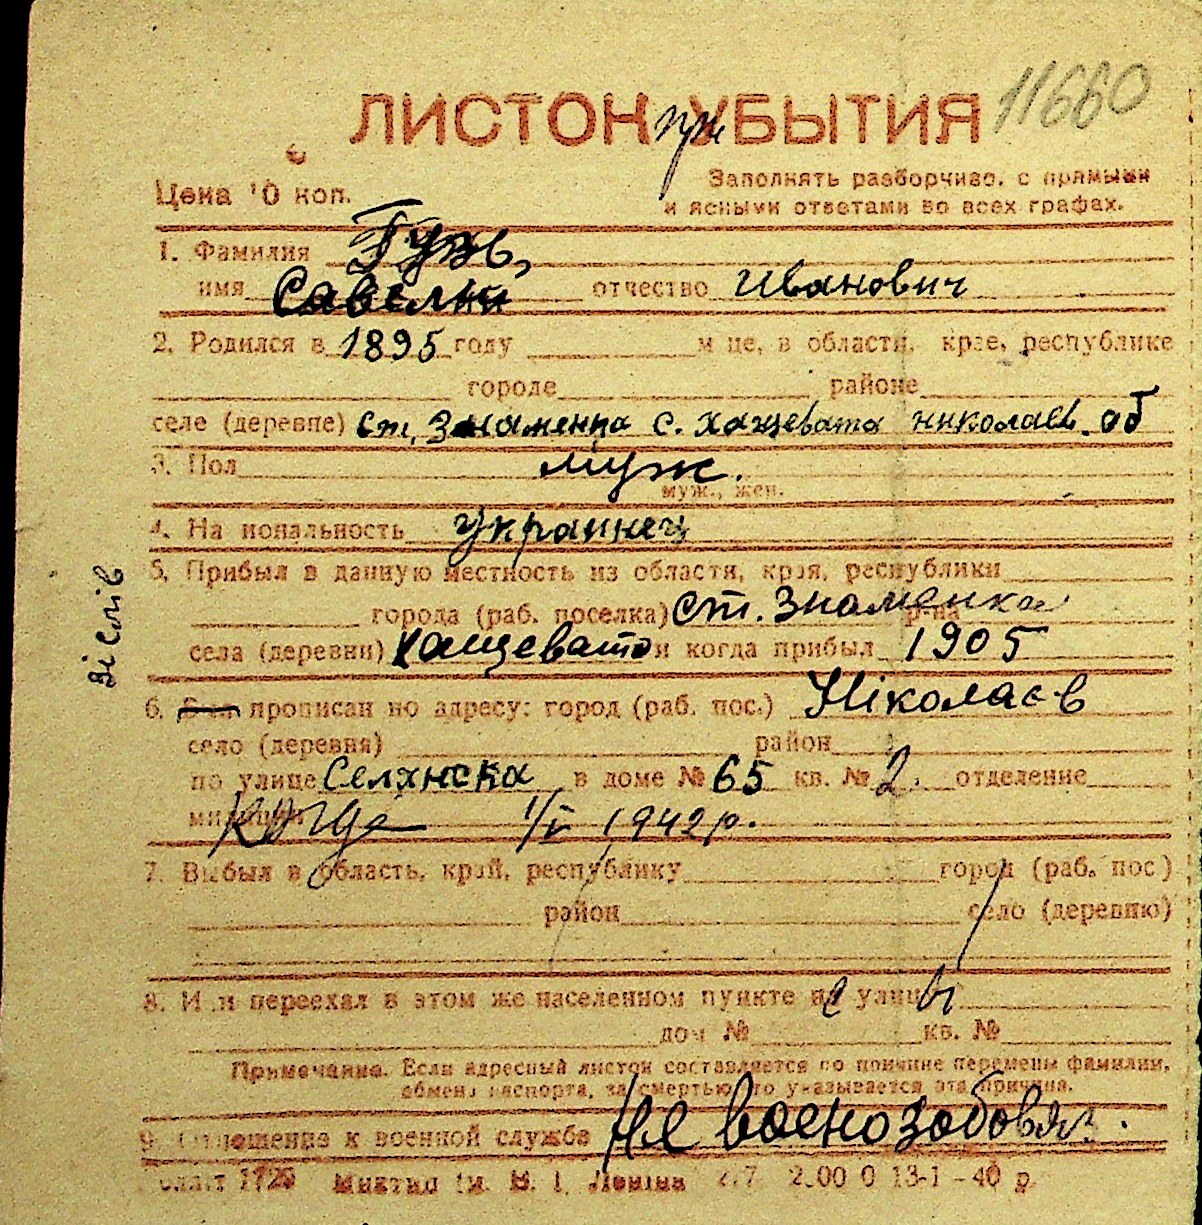 11660
ЛИСТОК при УБЫТИЯ
Цена 10 коп.
Заполнять разборчиво, с прямыми
и ясными ответами во всех графах.
1. Фамилия Гузь,
имя Савелий отчество Иванович
2. Родился в 1895 году м-це, в области, крае, республике
городе районе
селе (деревне) ст. Знаменка с. Хащевата Николаев. об
3. Пол муж.
муж., жен.
4. Национальность украинец
5. Прибыл в данную местность из области, края, республики
города (раб. поселка) ст. Знаменка р-на
села (деревни) Хащевато и когда прибыл 1905
6. прописан по адресу: город (раб. пос.) Ніколаєв
село (деревня) район
по улице Селянска в доме № 65 кв. № 2. отделение
милиции когда 1/V 1942 р.
7. Выбыл в область, край, республику город (раб. пос)
район село (деревню)
8. Или переехал в этом же населенном пункте на улицу
дом № кв. №
Примечание. Если адресный листок составляется по причине перемены фамилии,
обмена паспорта, за смертью, то указывается эта причина.
9. Отношение к военной службе Не воензобовяз.
1729 им. В. И. Ленина 13-1-40 р.